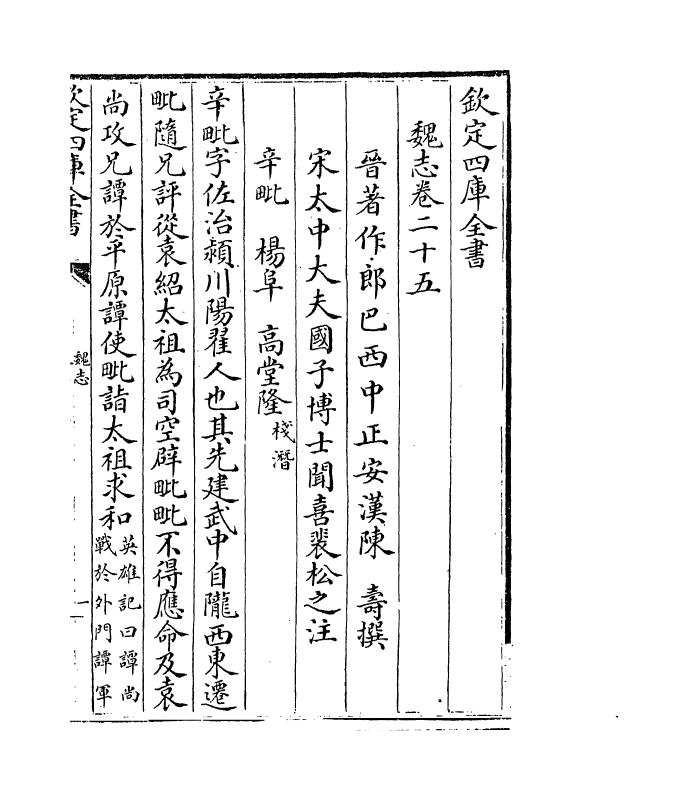 欽定四庫全書
魏志卷二十五
晉著作郎巴西中正安漢陳　壽撰
宋太中大夫國子博士聞喜裴松之注
辛毗　楊阜　高堂隆 棧潛
辛毗字佐治潁川陽翟人也其先建武中自隴西東遷
毗隨兄評從袁紹太祖為司空辟毗毗不得應命及袁
尚攻兄譚於平原譚使毗詣太祖求和 英雄記曰譚尚
戰於外門譚軍
欽定四庫全書
魏志
一